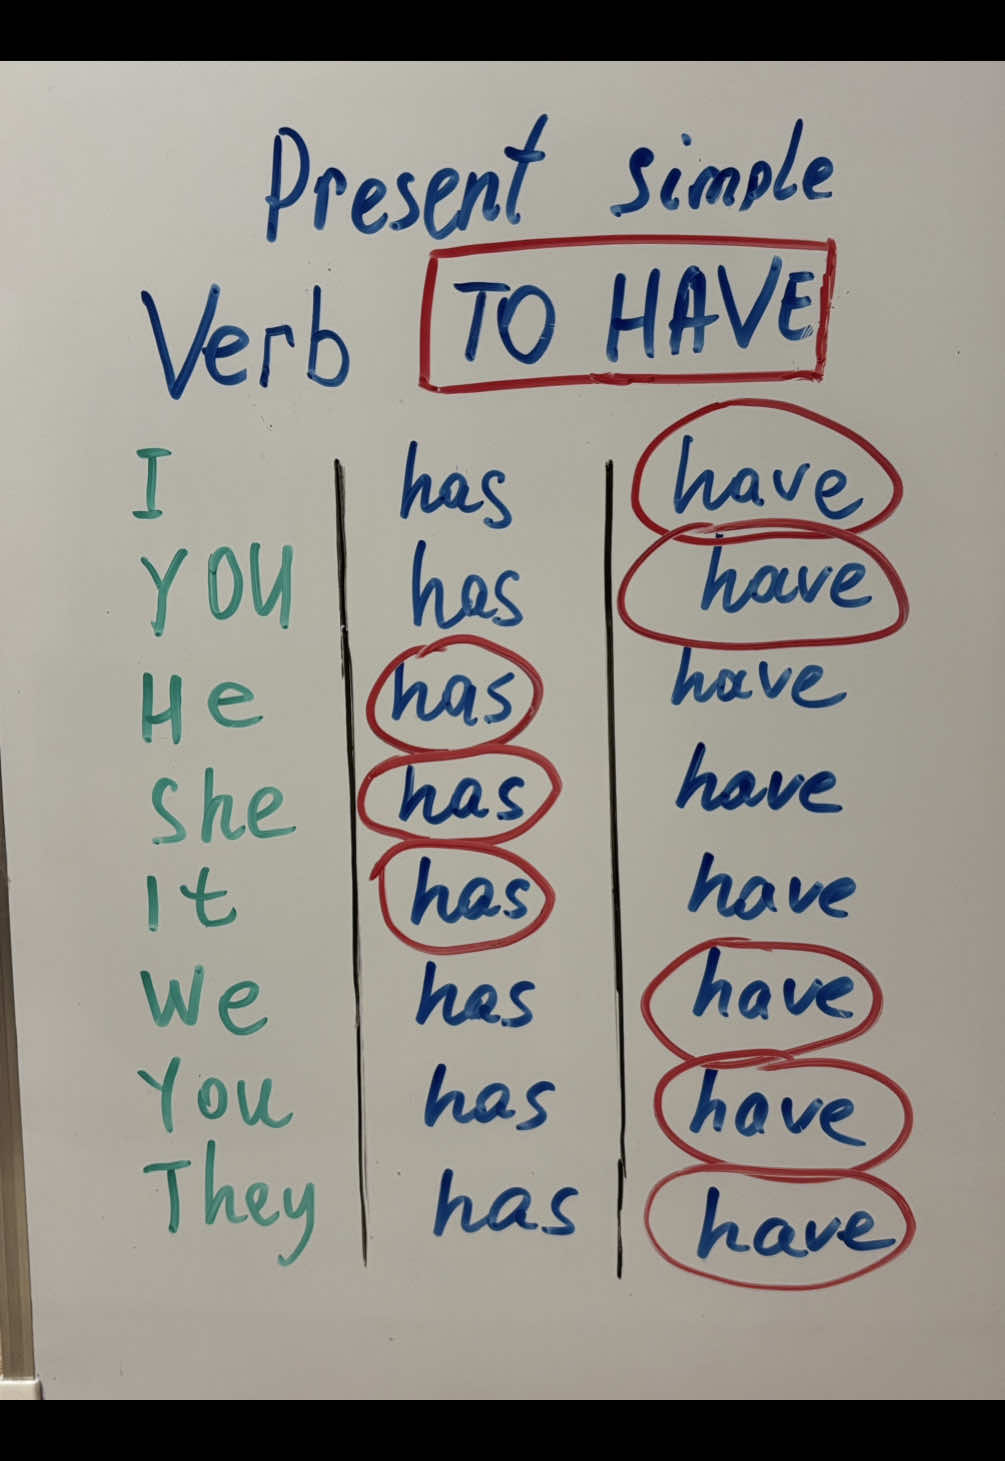 Present simple
Verb TO HAVE
I has have
YOU has have
He has have
She has have
It has have
We has have
You has have
They has have